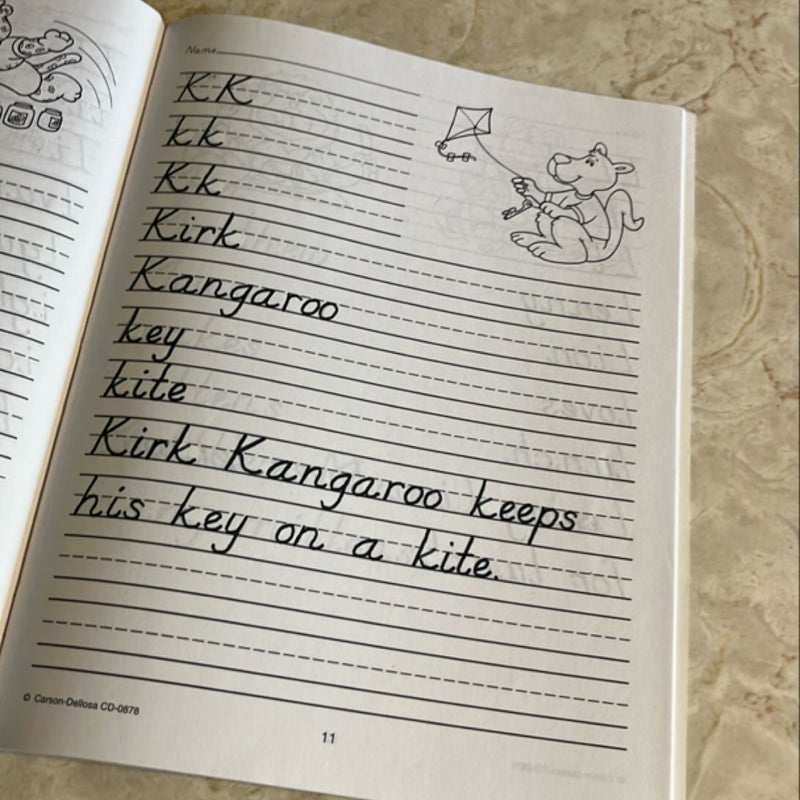 Name
K K
k k
K k
Kirk
Kangaroo
key
kite
Kirk Kangaroo keeps
his key on a kite.
© Carson-Dellosa CD-0878
11